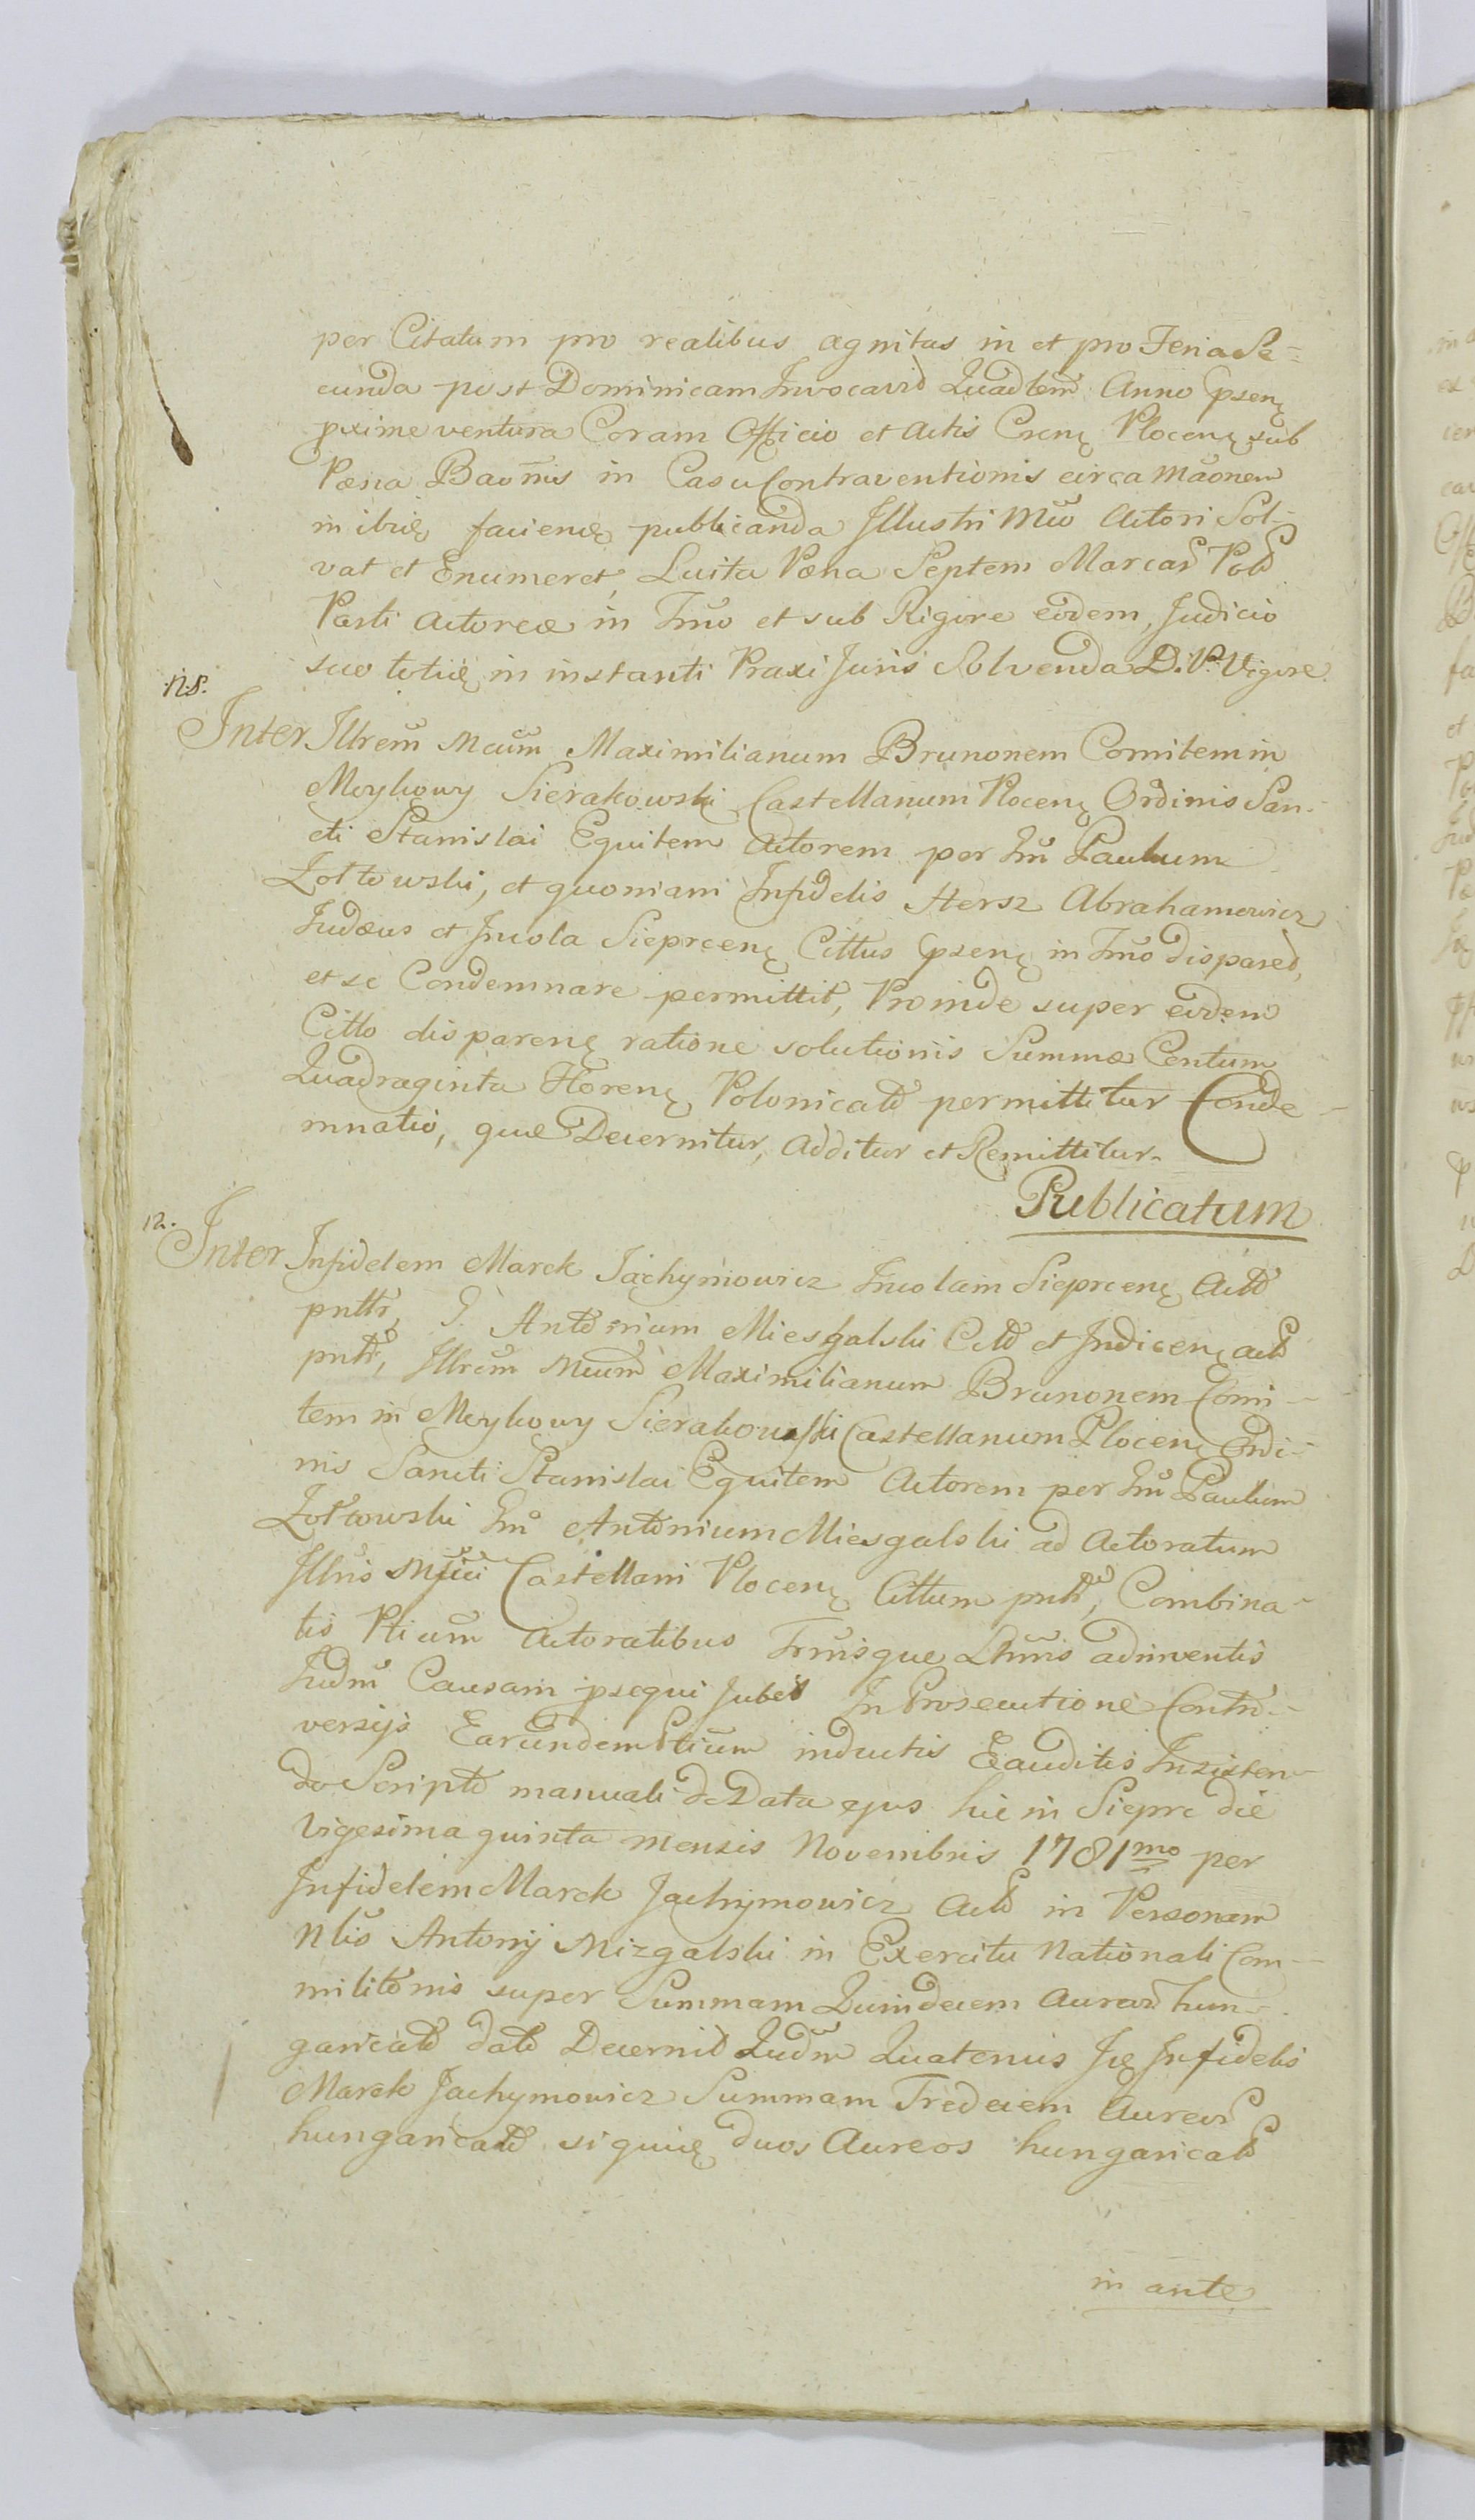 per Citatum pro realibus agnitas in et pro Feria Se-
cunda post Dominicam Invocavit Quadlem Anno psen
pxime ventura Coram Officio et Actis Cren Plocen sub
Pœna Baonis in Casu Contraventionis circa Maonem
in ibiq facien publicanda Illustri Mco Actori Sol-
vat et Enumeret, Luita Pœna Septem Marcar Pol
Parti Actoreæ in Tmo et sub Rigore eodem, Judicio
suo totiq in instanti Praxi Juris Solvenda D. P. Vigore.
ns.
Inter Illrem Mcum Maximilianum Brunonem Comitem in
Moykowy Sierakowski Castellanum Plocen Ordinis San-
cti Stanislai Equitem Actorem per Gm Paulum
Zołtowski, et quoniam Infidelis Hersz Abrahamowicz
Judæus et Incola Sieprcen Cittus psen in Tmo disparet,
et se Condemnare permittit, Proinde super eodem
Citto disparen ratione solutionis Summæ Centum
Quadraginta Floren Polonicalt permittitur Conde-
mnatio, quæ Decernitur, additur et Remittitur.
Publicatum
12.
Inter Infidelem Marek Jachymowicz Incolam Sieprcen Act
pnttr, G. Antonium Miesgalski Citt et Indicen act
pnttr, Illrem Mcum Maximilianum Brunonem Comi-
tem in Moykowy Sierakowski Castellanum Plocen Ordi-
nis Sancti Stanislai Equitem Actorem per Gm Paulum
Zołtowski Gm Antonium Miesgalski ad Actoratum
Illris Mfici Castellani Plocen Cittum pnttr, Combina-
tis Ptium Actoratibus Trmisque Lhmis adinventis
Judm Causam psequi Jubet In Prosecutione Contro-
versijs Earundem Ptium inductis Exauditis Insisten-
do Scripto manuali de Data ejus hic in Sieprc die
vigesima quinta mensis Novembris 1781mo per
Infidelem Marek Jachymowicz Act in Personam
Nlis Antonij Mizgalski in Exercitu Nationali Com-
militonis super Summam Quindecem Aureor hun-
garicalt dato Decernit Judm Quatenus Iq Infidelis
Marek Jachymowicz Summam Tredecem Aureor
hungaricalt siquiq duos Aureos hungaricalt
in ante